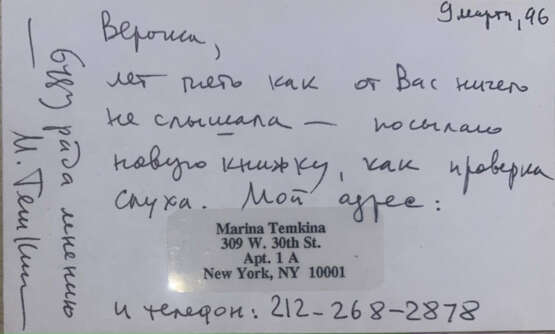 9 марта, 96
Верочка,
лет пять как от Вас ничего
не слышала — посылаю
новую книжку, как проверка
слуха. Мой адрес:
Marina Temkina
309 W. 30th St.
Apt. 1 A
New York, NY 10001
и телефон: 212-268-2878
буду рада мнению
М. Темкин